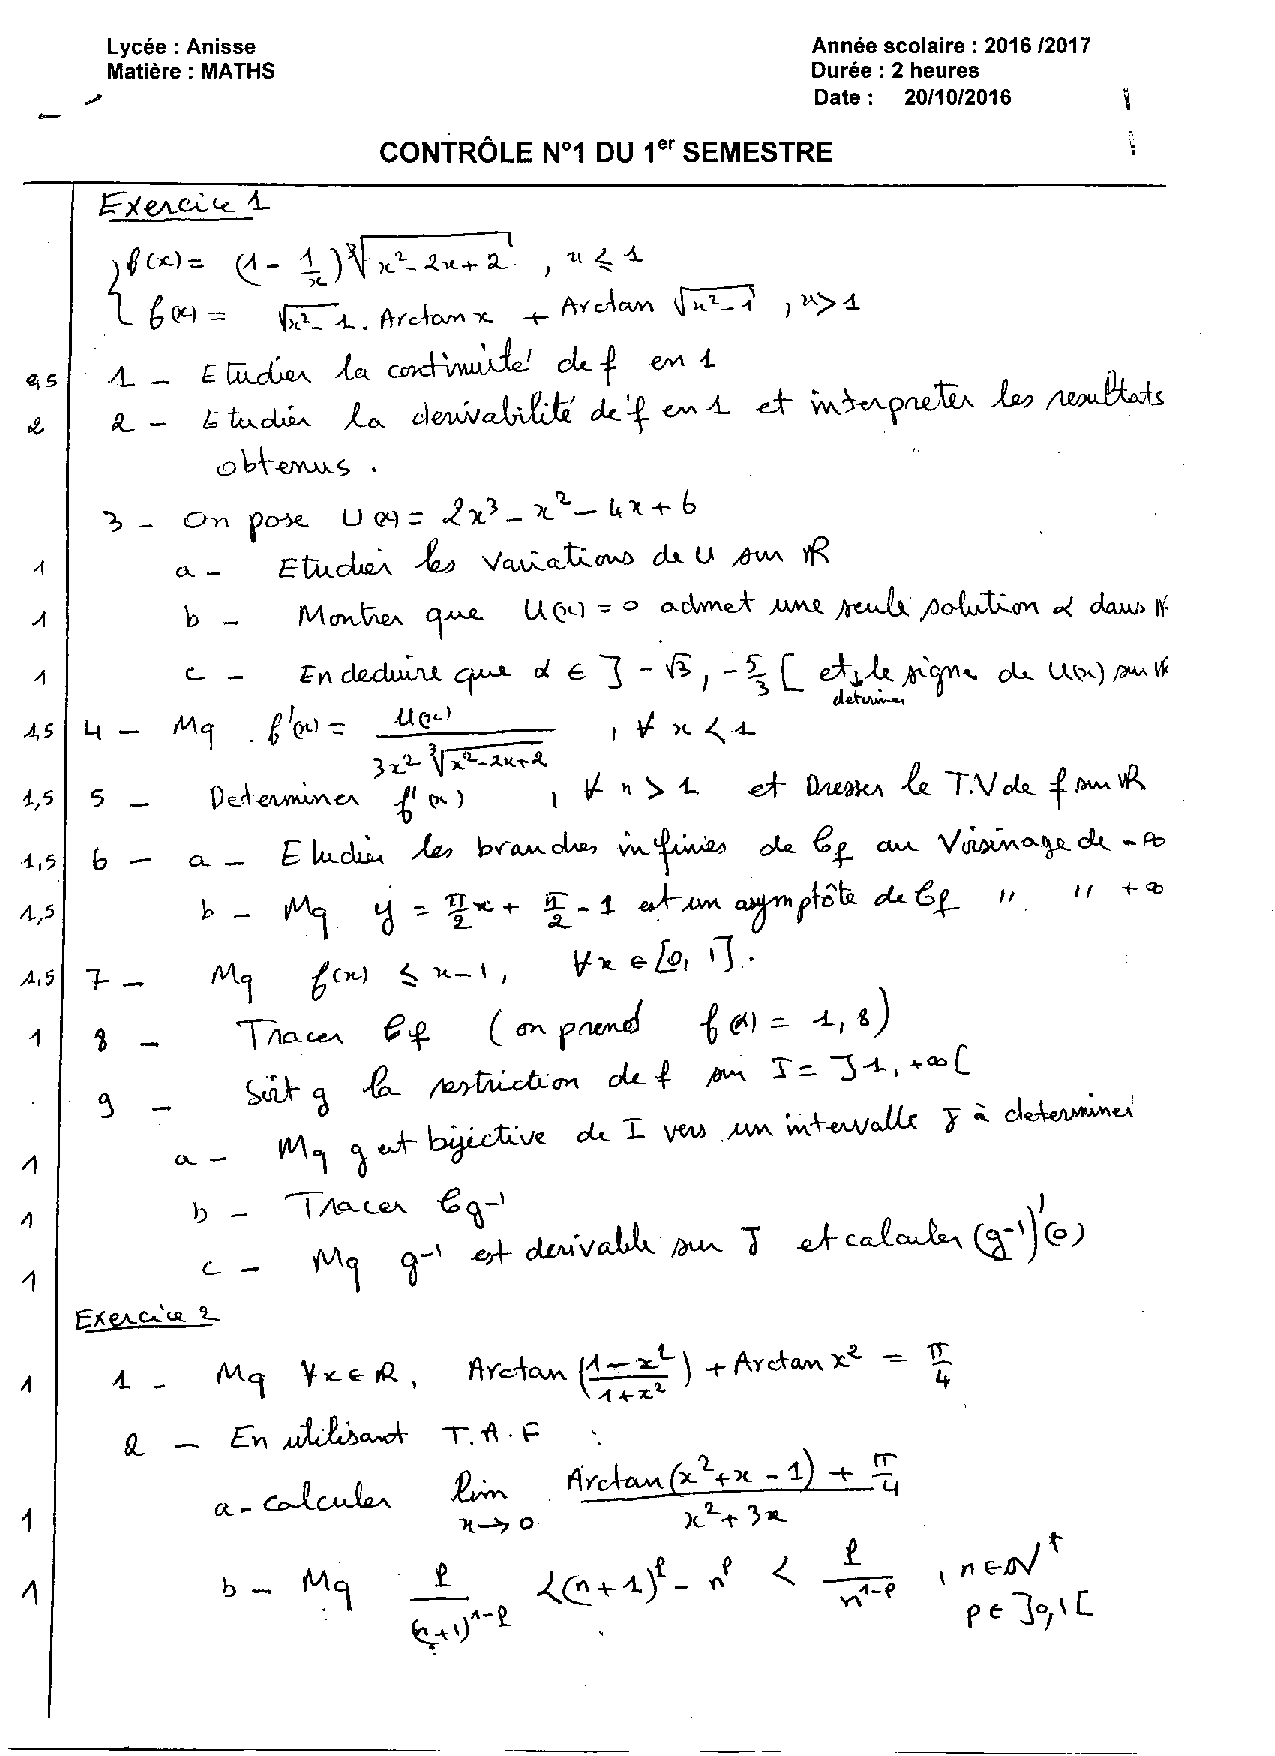 Lycée : Anisse Année scolaire : 2016 /2017
Matière : MATHS Durée : 2 heures
Date : 20/10/2016
CONTRÔLE N°1 DU 1er SEMESTRE
Exercice 1
{ f(x) = (1 - 1/x) ∛(x²-2x+2) , x ≤ 1
f(x) = √(x²-1) . Arctan x + Arctan √(x²-1) , x > 1
0,5 1 - Etudier la continuité de f en 1
2 2 - Etudier la dérivabilité de f en 1 et interpreter les resultats
obtenus .
3 - On pose U(x) = 2x³ - x² - 4x + 6
1 a - Etudier les variations de U sur ℝ
1 b - Montrer que U(x) = 0 admet une seule solution α dans ℝ
1 c - En deduire que α ∈ ]-√3 , -5/3[ et determiner le signe de U(x) sur ℝ
1,5 4 - Mq f'(x) = U(x) / (3x² ∛(x²-2x+2)) , ∀ x < 1
1,5 5 - Determiner f'(x) , ∀ x > 1 et Dresser le T.V de f sur ℝ
1,5 6 - a - Etudier les branches infinies de Cf au Voisinage de -∞
1,5 b - Mq y = π/2 x + π/2 - 1 est un asymptôte de Cf " " +∞
1,5 7 - Mq f(x) ≤ x-1 , ∀x ∈ [0, 1] .
1 8 - Tracer Cf (on prend f(α) = 1,8)
9 - Soit g la restriction de f sur I = ]1, +∞[
1 a - Mq g est bijective de I vers un intervalle J à determiner
1 b - Tracer Cg⁻¹
1 c - Mq g⁻¹ est derivable sur J et calculer (g⁻¹)'(0)
Exercice 2
1 1 - Mq ∀x ∈ ℝ , Arctan((1-x²)/(1+x²)) + Arctan x² = π/4
2 - En utilisant T.A.F :
1 a - calculer lim x→0 (Arctan(x²+x-1) + π/4) / (x²+3x)
1 b - Mq p/(n+1)^(1-p) < (n+1)^p - n^p < p/n^(1-p) , n ∈ ℕ*
p ∈ ]0,1[